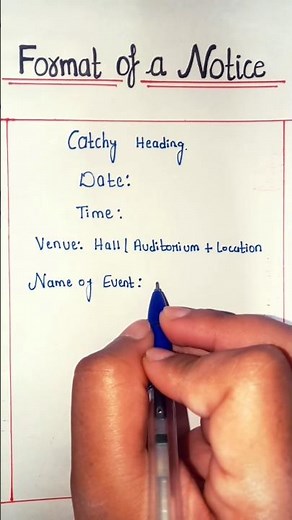 Format of a Notice
Catchy Heading.
Date:
Time:
Venue: Hall | Auditorium + Location
Name of Event: